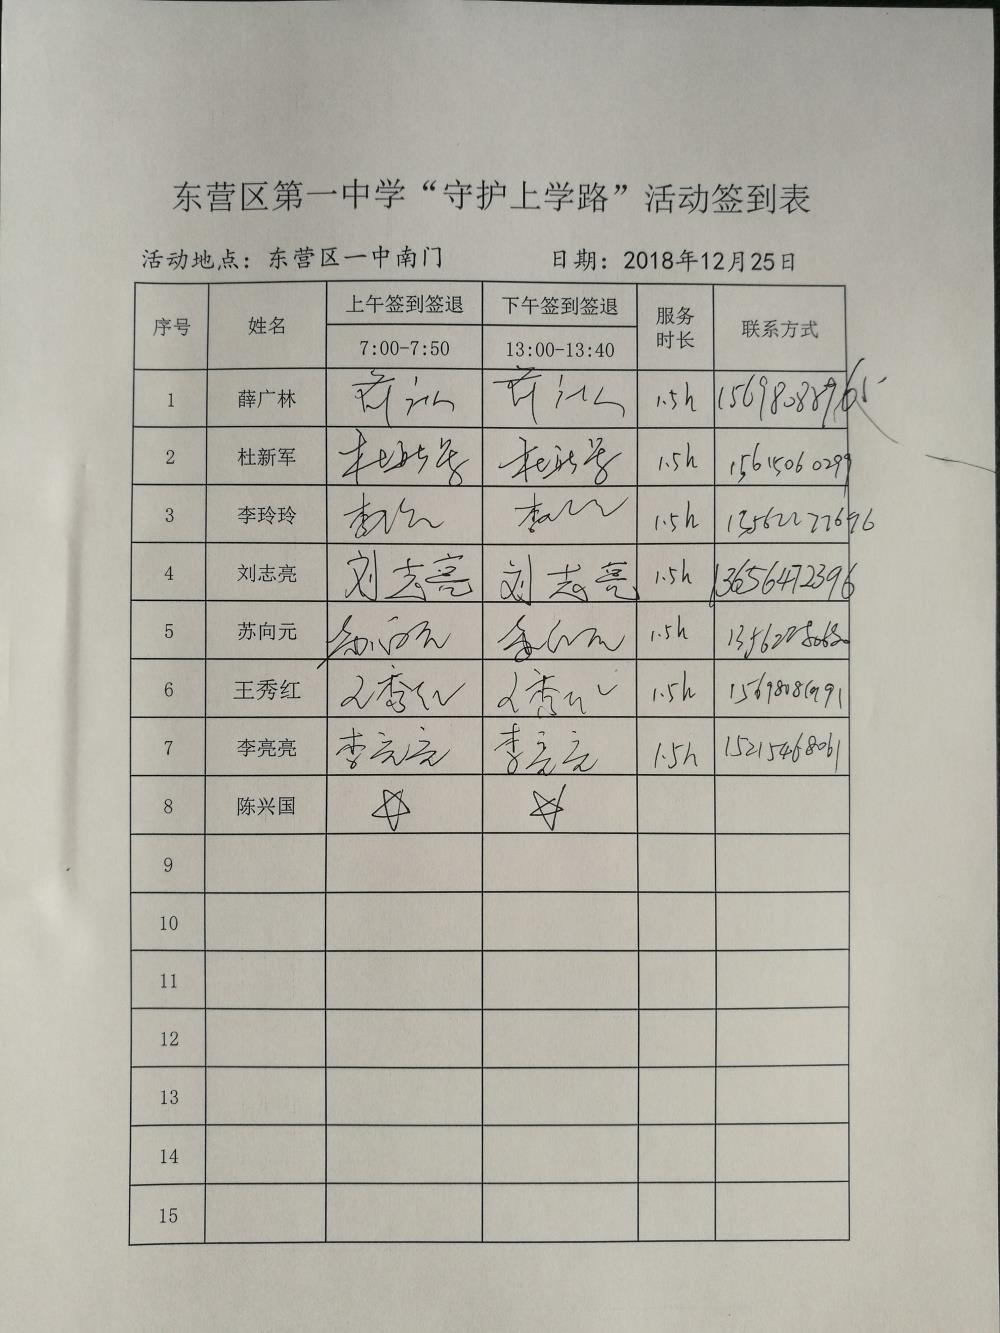 东营区第一中学“守护上学路”活动签到表
活动地点：东营区一中南门 日期：2018年12月25日
序号 姓名 上午签到签退 下午签到签退 服务时长 联系方式
7:00-7:50 13:00-13:40
1 薛广林 1.5h
2 杜新军 杜新军 杜新军 1.5h 15615060299
3 李玲玲 1.5h 13562277696
4 刘志亮 刘志亮 刘志亮 1.5h 13656472396
5 苏向元 1.5h
6 王秀红 王秀红 王秀红 1.5h
7 李亮亮 李亮亮 李亮亮 1.5h 15215468061
8 陈兴国
9
10
11
12
13
14
15